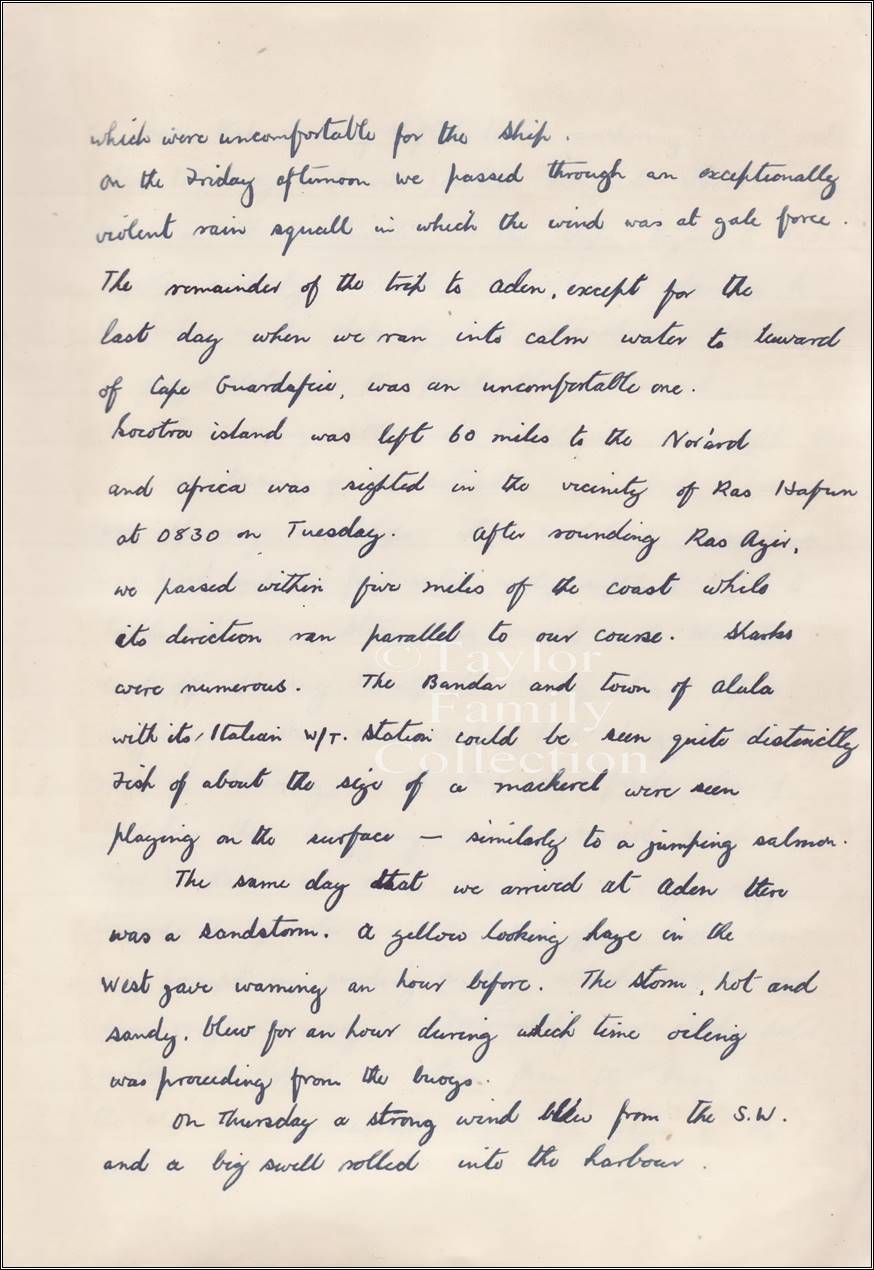 which were uncomfortable for the ship.
On the Friday afternoon we passed through an exceptionally
violent rain squall in which the wind was at gale force.
The remainder of the trip to Aden, except for the
last day when we ran into calm water to leeward
of Cape Guardafui, was an uncomfortable one.
Socotra island was left 60 miles to the Nor'ard
and Africa was sighted in the vicinity of Ras Hafun
at 0830 on Tuesday. After rounding Ras Azir,
we passed within five miles of the coast while
its direction ran parallel to our course. Sharks
were numerous. The Bandar and town of Alula
with its Italian W/T. Station could be seen quite distinctly
Fish of about the size of a mackerel were seen
playing on the surface — similarly to a jumping salmon.
The same day that we arrived at Aden there
was a sandstorm. A yellow looking haze in the
West gave warning an hour before. The storm, hot and
sandy, blew for an hour during which time oiling
was proceeding from the buoys.
On Thursday a strong wind blew from the S.W.
and a big swell rolled into the harbour.
©Taylor
Family
Collection